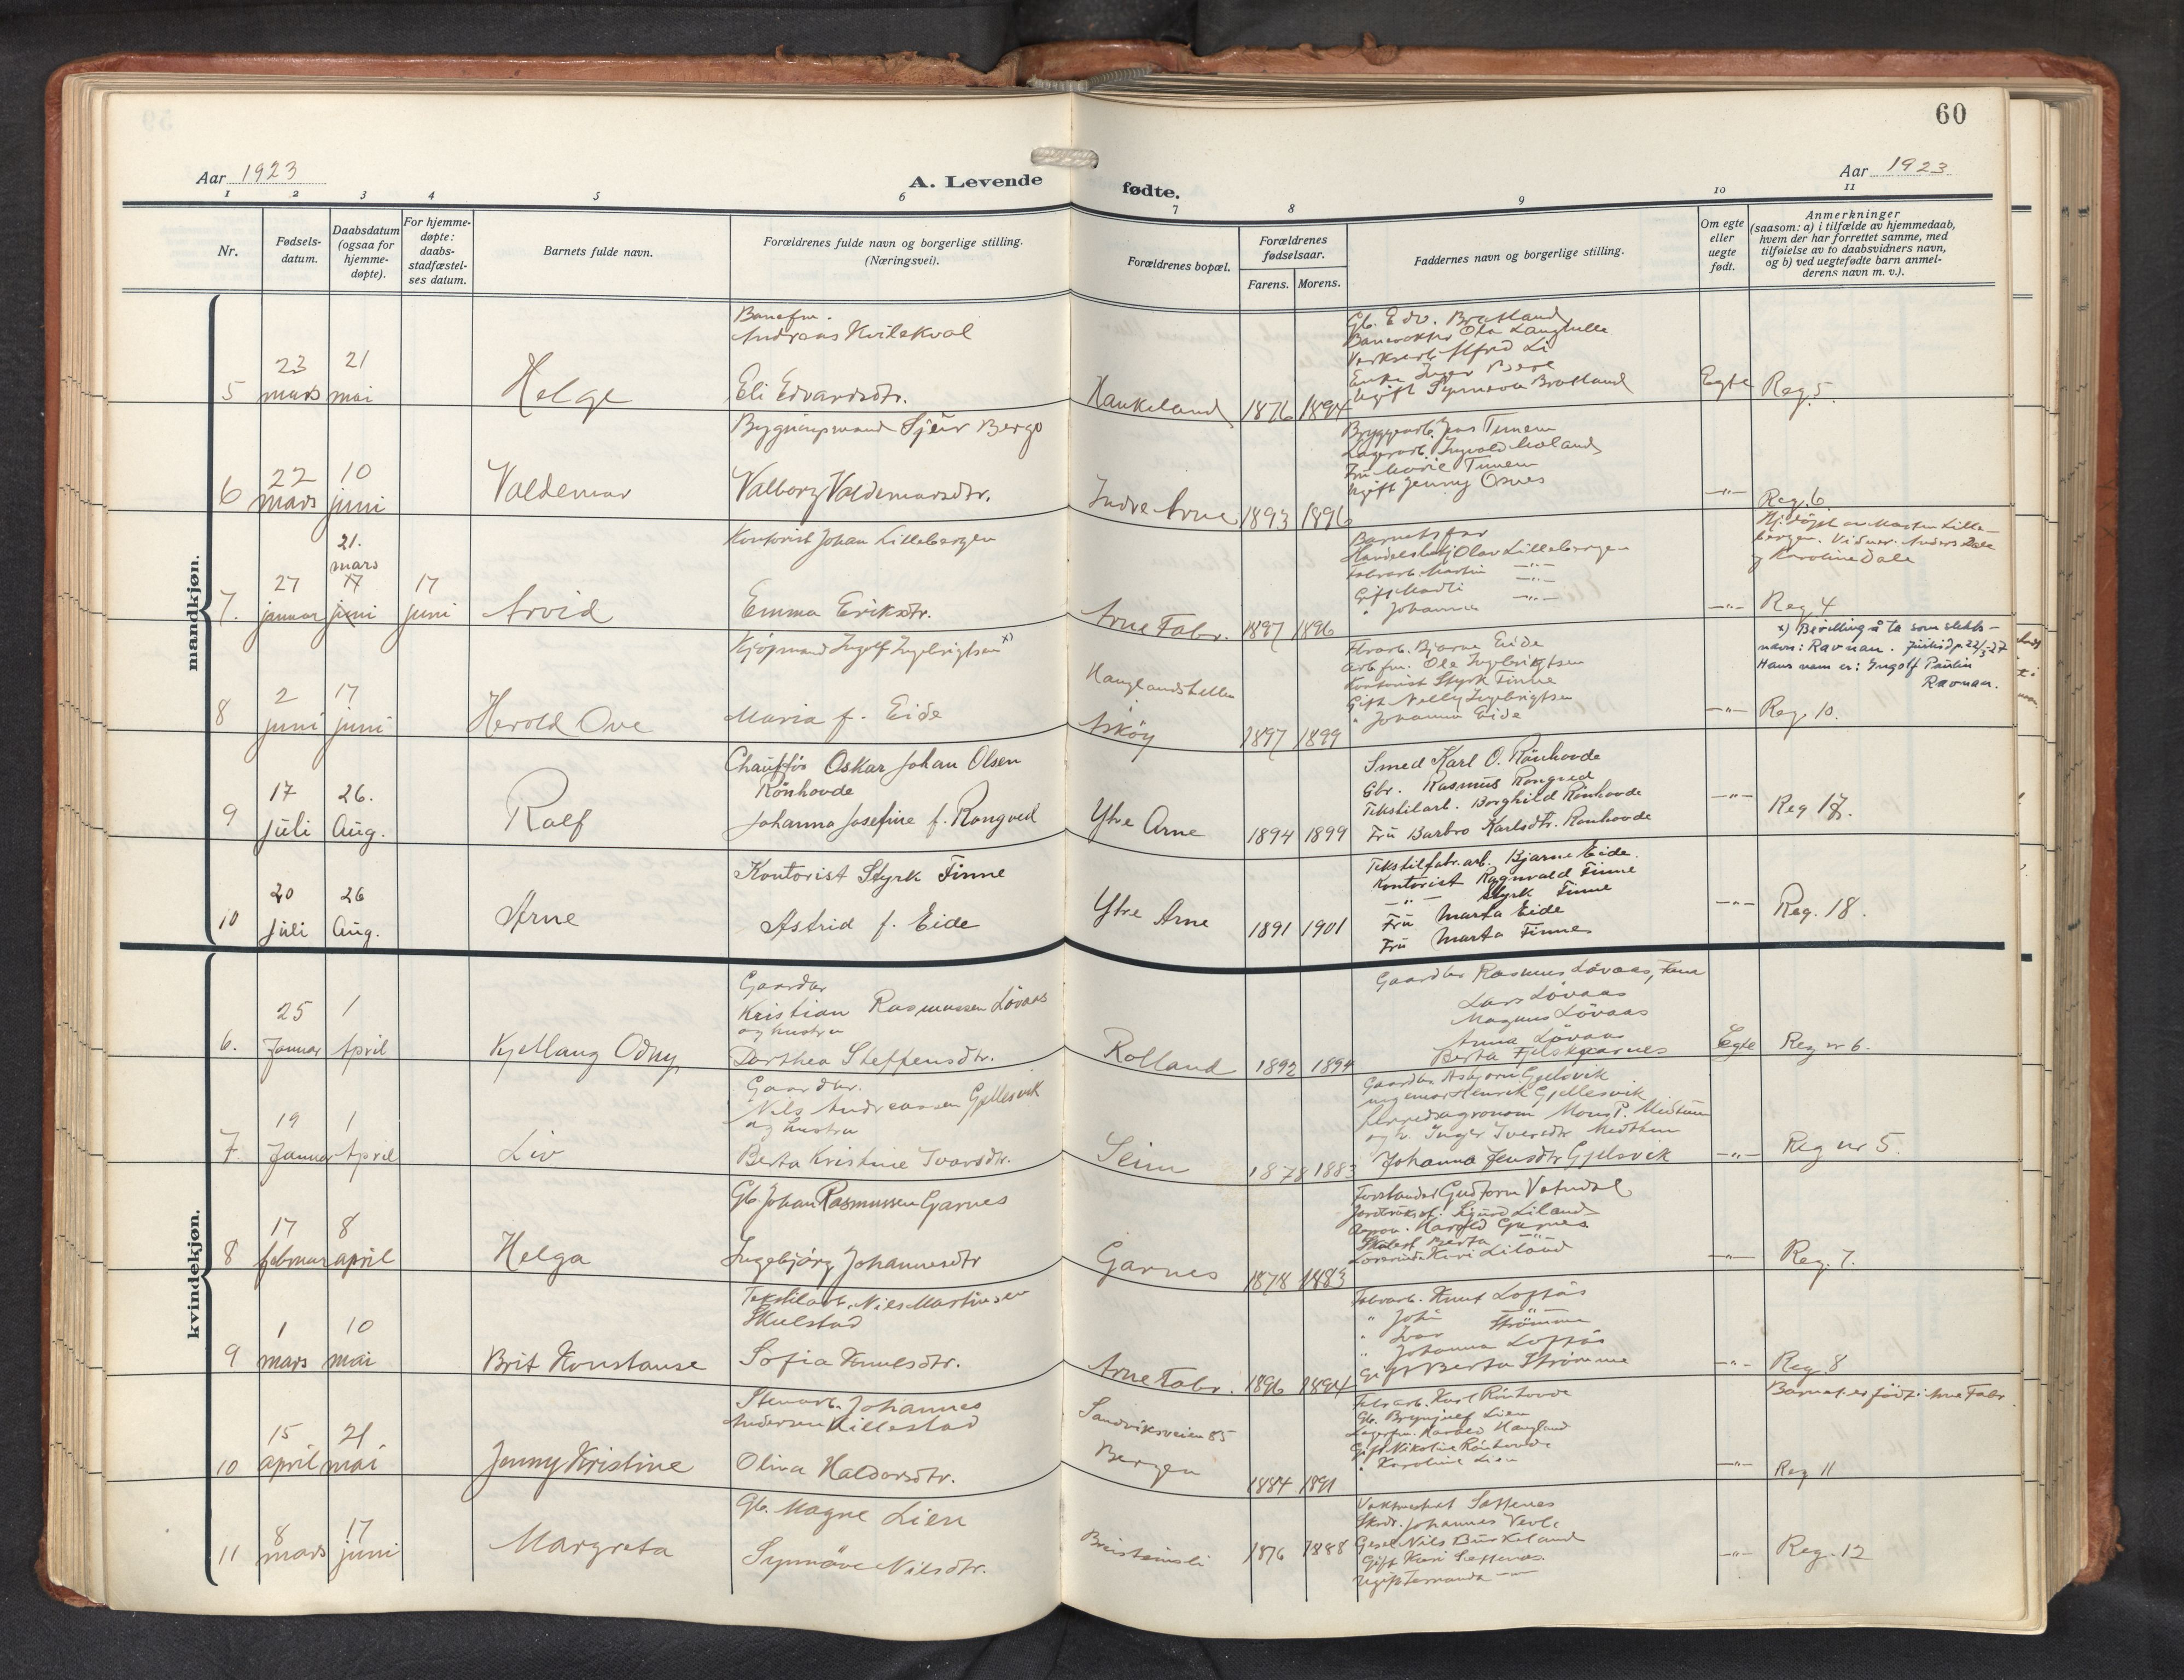 60
Aar 1923
A. Levende
fødte.
Aar 1923
1 2 3 4 5 6 7 8 9 10 11
Nr.
Fødsels-
datum.
Daabsdatum
(ogsaa for
hjemme-
døpte).
For hjemme-
døpte:
daabs-
stadfæstel-
ses datum.
Barnets fulde navn.
Forældrenes fulde navn og borgerlige stilling.
(Næringsvei).
Forældrenes bopæl.
Forældrenes
fødselsaar.
Farens. Morens.
Faddernes navn og borgerlige stilling.
Om egte
eller
uegte
født.
Anmerkninger
(saasom: a) i tilfælde av hjemmedaab,
hvem der har forrettet samme, med
tilføielse av to daabsvidners navn,
og b) ved uegtefødte barn anmel-
derens navn m. v.).
mandkjøn.
5
23 mars
21 mai
Helge
Banefm.
Andreas Kvilekval
Eli Edvardsdtr.
Haukeland
1876 1894
Gb. Edv. Bratland
Banevokter Ola Langhelle
Verksarb. Alfred Li
Enke Inger
Ugift Synnøva Bratland
Egte
Reg. 5.
6
22 mars
10 juni
Valdemar
Bygningsmand Sjur Berge
Valborg Valdemarsdtr.
Indre Arne
1893 1896
Bryggearb. Jens Tunem
Lagerarb. Ingvald Moland
Fru Marie Tunem
Ugift Jenny Osnes
-"-
Reg. 6
7.
27 januar
21. mars
17 juni
17 juni
Arvid
Kontorist Johan Lillebergen
Emma Eriksdtr.
Arne Fabr.
1897 1896
Barnets far
Handelsbetj Olav Lillebergen
Fabrarb. Martin -"-
Gift Madli -"-
" Johanna -"-
-"-
Hj. døpt av Marten Lille-
bergen. Vidner. Anders Dale
og Karoline Dale
Reg 4
8
2 juni
17 juni
Herold Ove
Kjøpmand Ingolf Ingebrigtsen x)
Maria f. Eide
Hanglandshellen
Askøy
1897 1899
Fbrarb. Bjarne Eide
Arb.fm. Ola Ingebrigtsen
Kontorist Styrk Finne
Gift Nelly Ingebrigtsen
" Johanna Eide
-"-
x) Bevilling å ta som slekts-
navn: Ravnan. Justisdp. 22/3-27
Hans navn er: Ingolf Paulin
Ravnan.
Reg. 10.
9
17 juli
26. Aug.
Rolf
Chauffør Oskar Johan Olsen
Rönhovde
Johanna Josefine f. Rongved
Ytre Arne
1894 1899
Smed Karl O. Rönhovde
Gbr. Rasmus Rongved
Tekstilarb. Borghild Rönhovde
Frü Barbro Karlsdtr. Rønhovde
-"-
Reg 17.
10
20 juli
26 Aug.
Arne
Kontorist Styrk Finne
Astrid f. Eide
Ytre Arne
1891 1901
Tekstilfabr.arb. Bjarne Eide.
Kontorist Ragnvald Finne
-"- Styrk Finne
Frü Marta Eide
Frü Marta Finne
-"-
Reg. 18.
kvindekjøn.
6.
25 Januar
1 April
Kjellaug Odny
Gaardbr
Kristian Rasmussen Lövaas
og hustru
Dorthea Steffensdtr.
Rolland
1892 1894
Gaardbr Rasmus Lövaas, Fana
Lars Lövaas
Magnus Lövaas
Anna Lövaas
Berta Fjelskaarnes
Egte
Reg nr 6.
7
19 Januar
1 April
Liv
Gaardbr.
Nils Andreassen Gjellesvik
og hustru
Berta Kristine Ivarsdtr.
Seim
1878 1883
Gaardbr. Asbjørn Gjelsvik
ungkar Henrik Gjellesvik
herredsagronom Mons P. Midttun
og h. Inger Iversdtr Midttun
Johanna Jensdtr Gjelsvik
-"-
Reg nr 5.
8
17 februar
8 april
Helga
Gb. Johan Rasmussen Garnes
Ingebjørg Johannesdtr
Garnes
1878 1883
Forstander Gudtorm Vatndal
Sigurd Liland
Agron. Harald Garnes
Berta -"-
Lærerinde Kari Liland
-"-
Reg. 7.
9
1 mars
10 mai
Brit Konstanse
Tekstilarb. Nils Martinsen
Skulstad
Sofia Knutsdtr.
Arne Fabr.
1896 1894
Fabrarb. Knut Loftås
" John -"-
" Ivar Strömme
" Johanna Loftås
Gift Berta Strömme
-"-
Reg. 8
10
15 april
21 mai
Jenny Kristine
Stenarb. Johannes
Andersen Lillestad
Olina Haldorsdtr.
Sandviksveien 85
Bergen
1884 1891
Fabrarb. Karl Rönhovde
Gb. Brynjulf Lien
Lagerfm. Harald Haugland
Gift Nikoline Rönhovde
" Karoline Lien
-"-
Barnet er født i Arne Fabr.
Reg 11
11
8 mars
17 juni
Margreta
Gb. Magne Lien
Synnöve Nilsdtr.
Breisteinsli
1876 1888
Vaktmester Settenes
Johannes Vevle
Gesel Nils Birkeland
Gift Kari Settenes
Ugift Fernanda -"-
-"-
Reg. 12